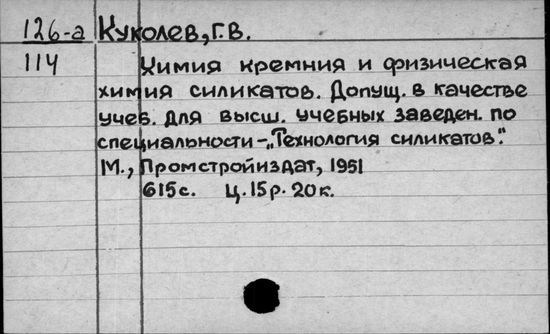 126-а Куколев, Г.В.
114 Химия кремния и физическая
химия силикатов. Допущ. в качестве
учеб. для высш. учебных заведен. по
специальности-„Технология силикатов."
М., Промстройиздат, 1951
615с. Ц. 15р. 20к.